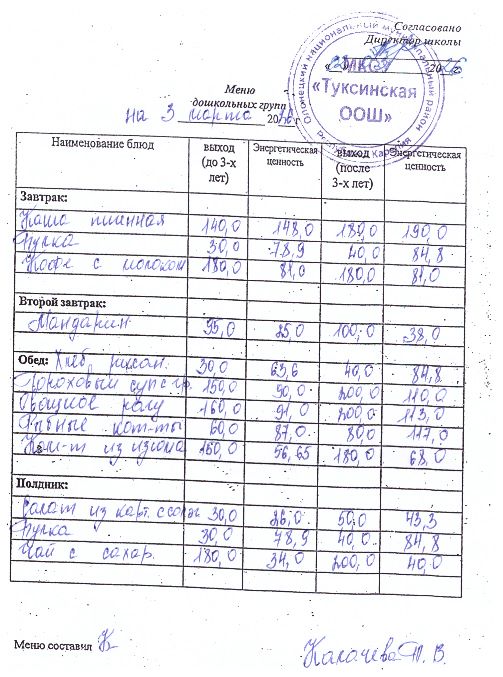 Согласовано
Директор школы
« » 2026 г.
Олонецкий национальный муниципальный район
МКОУ
«Туксинская
ООШ»
Республика Карелия
Меню
дошкольных групп
на 3 марта 2026 г
Наименование блюд выход (до 3-х лет) Энергетическая ценность выход (после 3-х лет) Энергетическая ценность
Завтрак:
Каша пшенная 140,0 148,0 180,0 190,0
Булка 30,0 78,9 40,0 84,8
Кофе с молоком 180,0 81,0 180,0 81,0
Второй завтрак:
Мандарин 95,0 25,0 100,0 38,0
Обед: Хлеб ржан. 30,0 63,6 40,0 84,8
Гороховый суп с гр. 150,0 90,0 200,0 110,0
Овощное рагу 160,0 91,0 200,0 113,0
Рыбные кот-ты 60,0 87,0 80,0 117,0
Ком-т из изюма 150,0 56,65 180,0 68,0
Полдник:
Салат из карт. с солен 30,0 26,0 50,0 43,3
Булка 30,0 78,9 40,0 84,8
Чай с сахар. 180,0 34,0 200,0 40,0
Меню составил К Калачева Т. В.